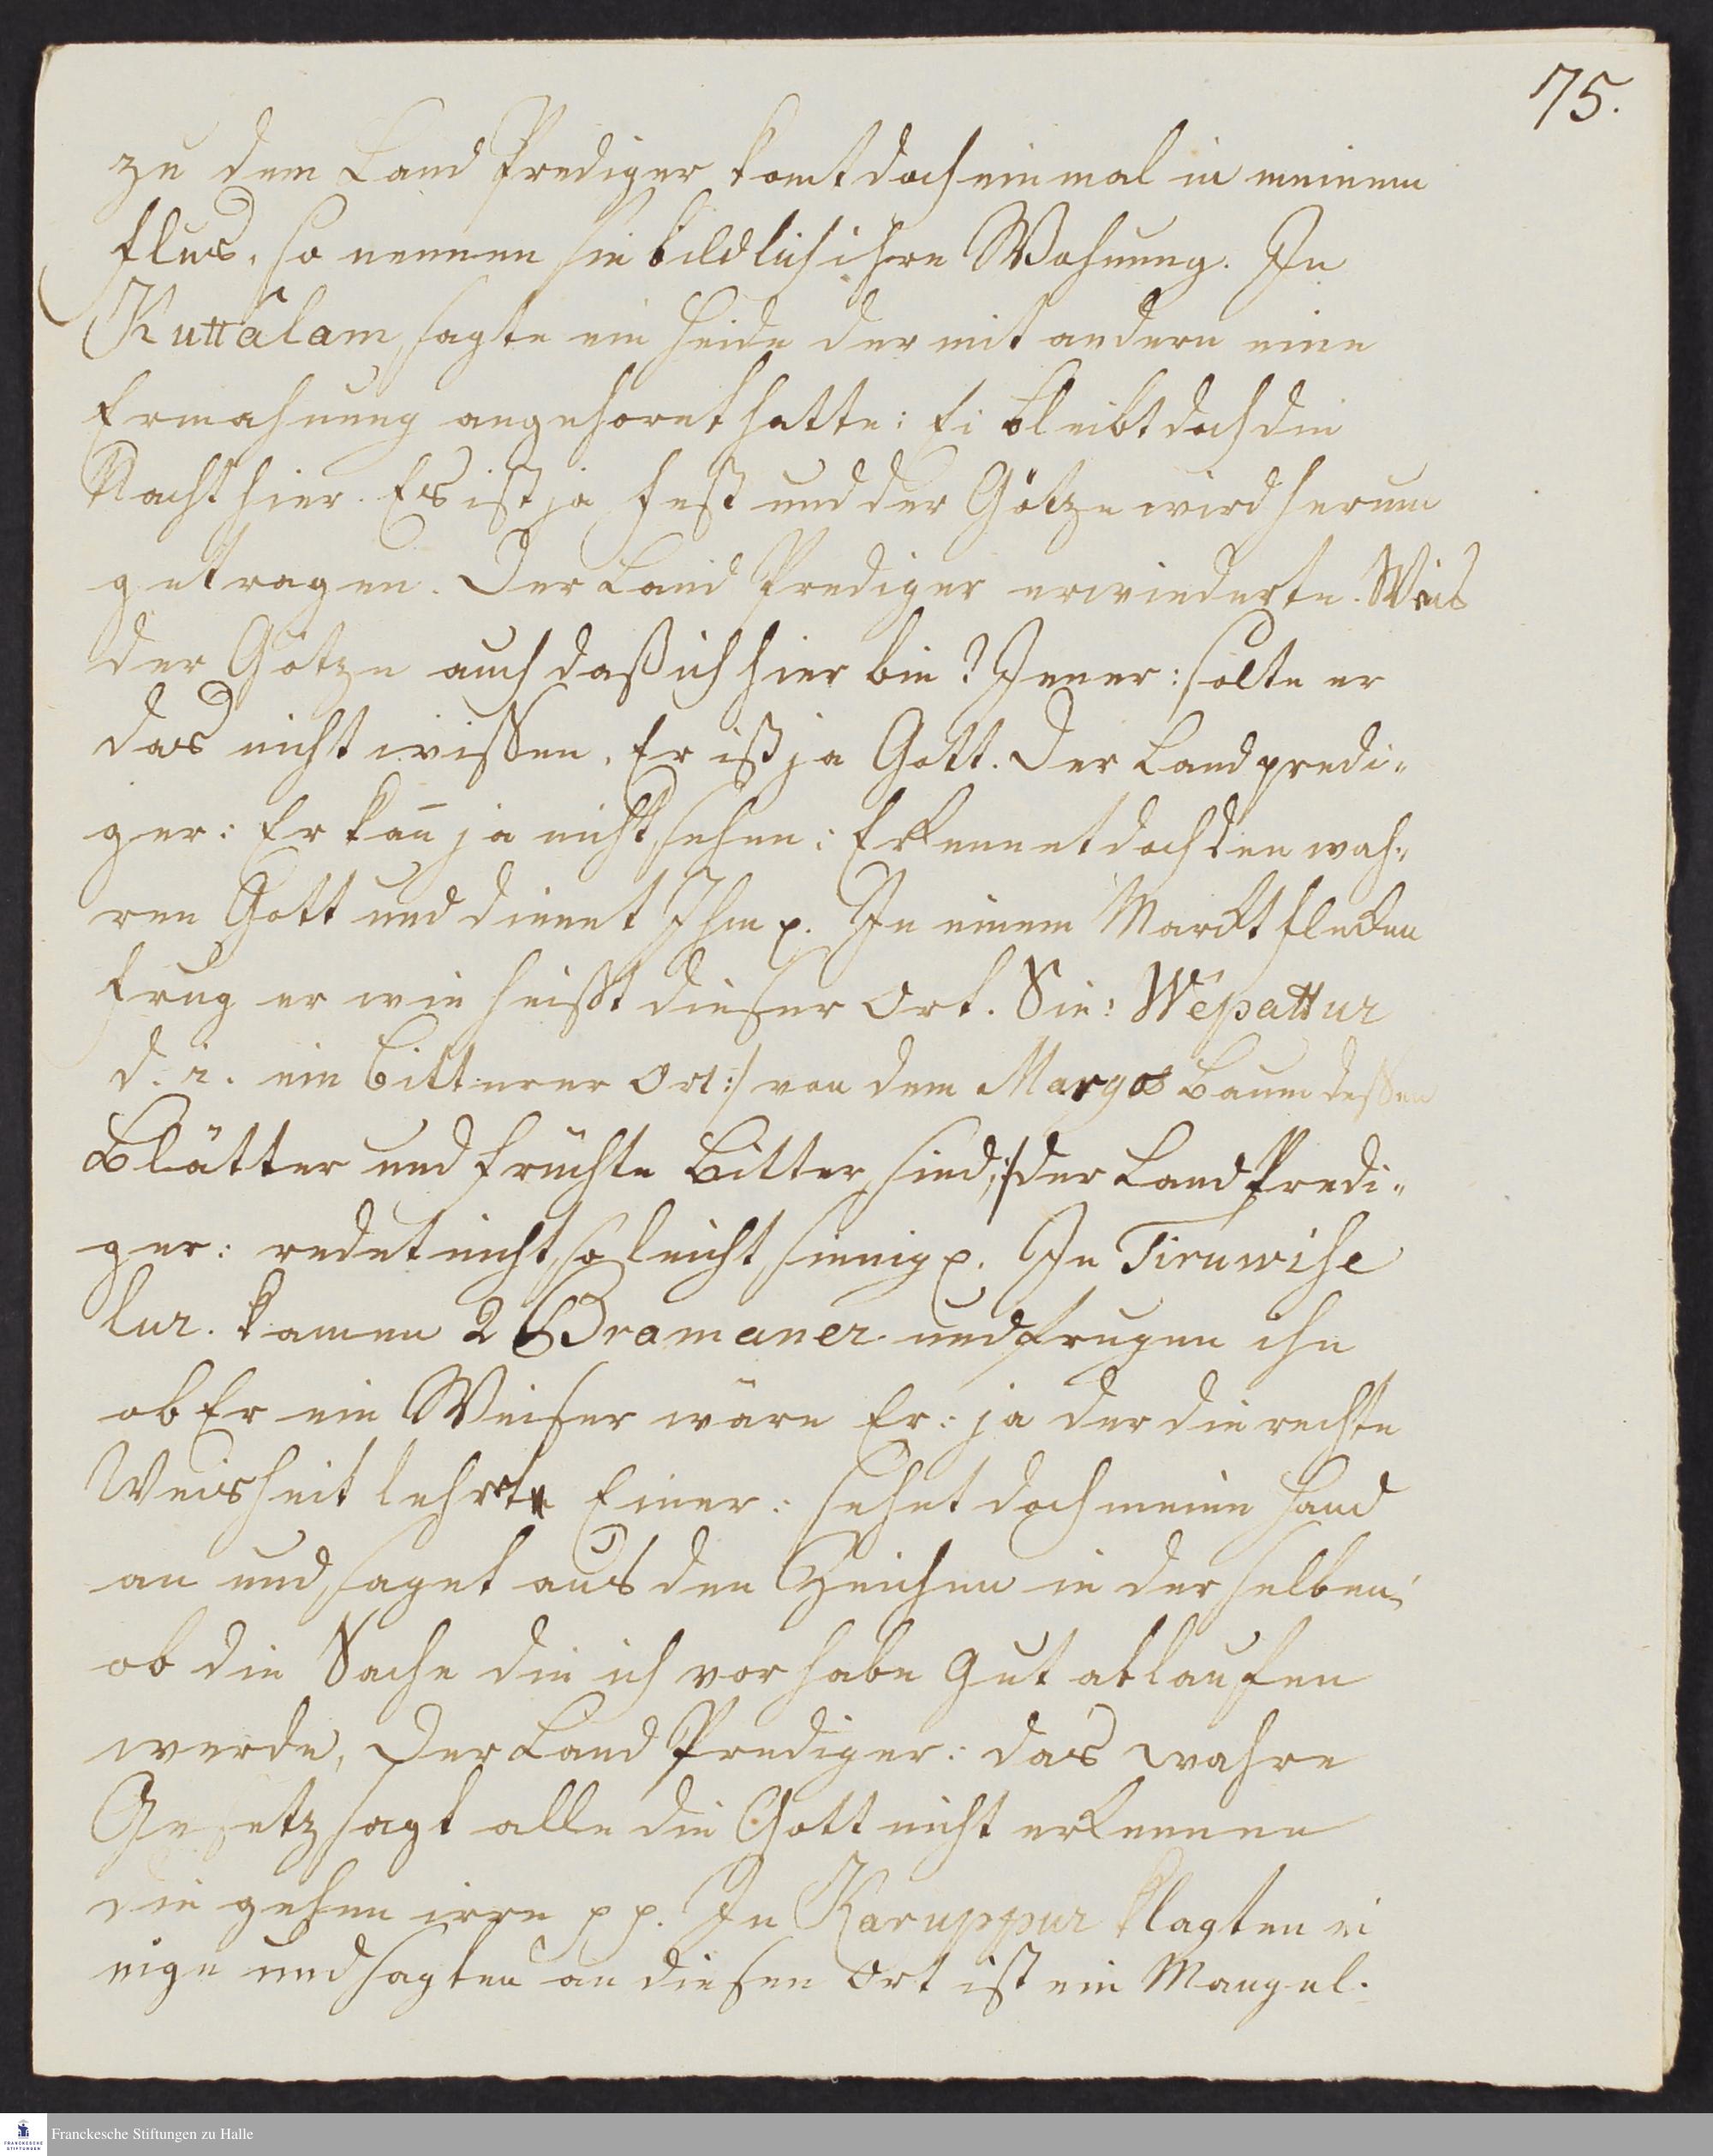 75.
zu dem Land Prediger komt doch einmal in meinem
Flus, so nennen sie bildlich ihre Wohnung. In
Kuttâlam sagte ein Heide der mit andern eine
Ermahnung angehoret hatte: Ei bleibt doch die
Nacht hier. Es ist ja Fest und der Götze wird herum
getragen. Der Land Prediger erwiederte. Weis
der Götze auch daß ich hier bin? Jener: solte er
das nicht wißen, Er ist ja Gott. Der Landpredi-
ger: Er kan̄ ja nicht sehen: Erkennet doch den wah-
ren Gott und dienet Ihm p. In einem Marckt flecken
frug er wie heißt dieser Ort. Sie: Wêpattur
d. i. ein bitterer Ort :/ von dem Margos Baum deßen
Blätter und Früchte bitter sind, :/ der Land Predi-
ger: redet nicht so leicht sinnig p. In Tiruwise
lur. kamen 2 Bramaner und frugen ihn
ob Er ein Weiser wäre Er: ja der die rechte
Weisheit lehrte Einer: sehet doch meine Hand
an und saget aus den Zeichen in derselben,
ob die Sache die ich vorhabe gut ablaufen
werde, Der Land Prediger: das wahre
Gesetz sagt alle die Gott nicht erkennen
die gehen irre pp. In Karuppur klagten ei
nige und sagten an diesen Ort ist ein Mangel.
Franckesche Stiftungen zu Halle